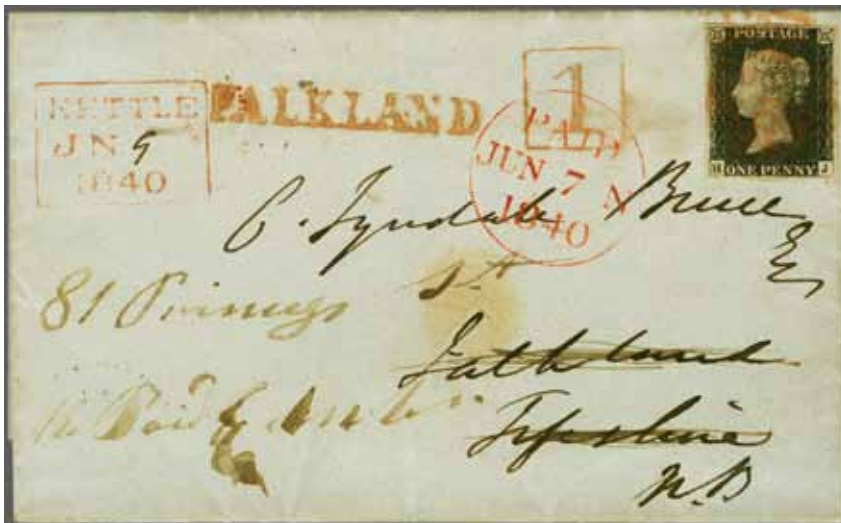 POSTAGE
ONE PENNY
H J
KETTLE
JN 9
1840
FALKLAND
1
PAID
JUN 7 N
1840
O. Tyndale Bruce
Esq
81 Princes St
Falkland
Fifeshire
N.B